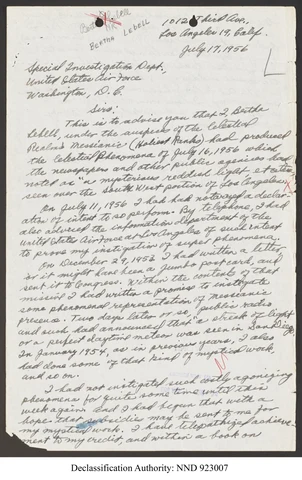 BERTHA LEBELL
1012 Third Ave.,
Los Angeles 19, Calif.
July 17, 1956
Special Investigation Dept.,
United States Air Force
Washington, D. C.
Sirs:
This is to advise you that I, Bertha
LeBell, under the auspices of the Celestial
Messianic (Holiest Ranks) had produced
the Celestial Phenomena of July 16, 1956 which
the newspapers and other public agencies had
noted as a mysterious reddish light, etc.,
seen over the South West portion of Los Angeles.
On July 11, 1956 I had had notarized a declar-
ation of intent to so perform. By telephone, I had
also advised the information department of the
United States Air Force at Los Angeles of such intent
to prove my instigation of super phenomena.
On December 29, 1953 I had written a letter
or it might have been a jumbo postcard, and
sent it to Congress. Within the contents of that
missive I had written a promise to instigate
some phenomenal representation of messianic
presence. Two days later or so, public radio
and such had announced that a streak of light
or a perfect daytime meteor was seen in San Diego.
In January 1954, as in previous years, I also
had done some of that kind of mystical work,
and so on.
I had not instigated such costly agonizing
phenomena for quite some time until this
week again and I had begun that with a
hope that subsidies may be sent to me for
my mystical work. I have telepathized achieve-
ment to my credit and within a book on
Declassification Authority: NND 923007